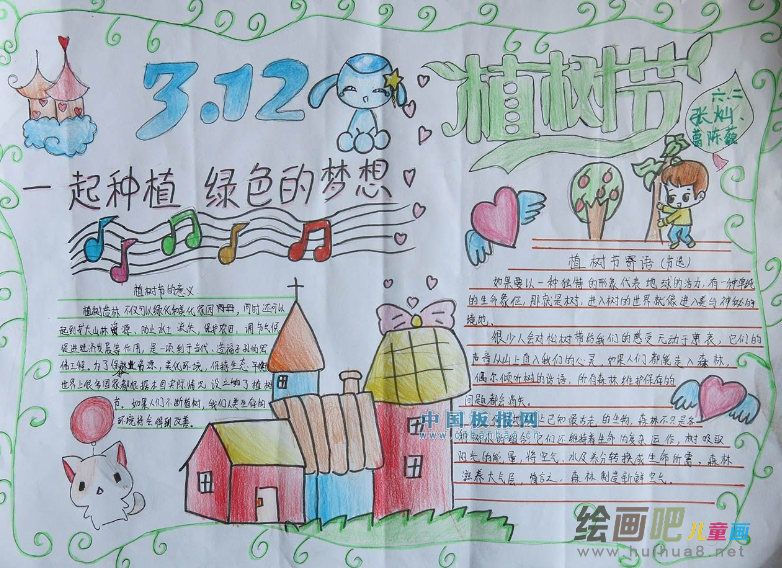 3.12
植树节
六.二
张灿、
葛陈薇
一起种植 绿色的梦想
植树节的意义
植树造林不仅可以绿化和美化家园,同时还可以
起到扩大山林资源、防止水土流失、保护农田、调节气候
促进经济发展等作用,是一项利于当代、造福子孙的宏
伟工程。为了保护林业资源、美化环境、保持生态平衡
世界上很多国家都根据本国实际情况设立了植树
节。如果人们不断植树,我们人类生存的
环境将会得到改善。
植树节寄语(节选)
如果需以一种独特的形象代表地球的活力,有一种黑绝
的生命象征,那就是树。进入树的世界就像进入美与神秘的
境地。
很少人会对松树带给我们的感受无动于衷,它们的
声音从山上直入我们的心灵,如果人们都能走入森林,
偶尔倾听树的话语,所有森林维护保育的
问题都会消失。
上已知最大的生物,森林不只是
它们还维持着生命的复杂运作,树吸取
阳光的能量,将空气、水及养分转换成生命所需,森林
滋养大气层,换言之,森林制造新鲜空气。
中国板报网
绘画吧儿童画
www.huihua8.net